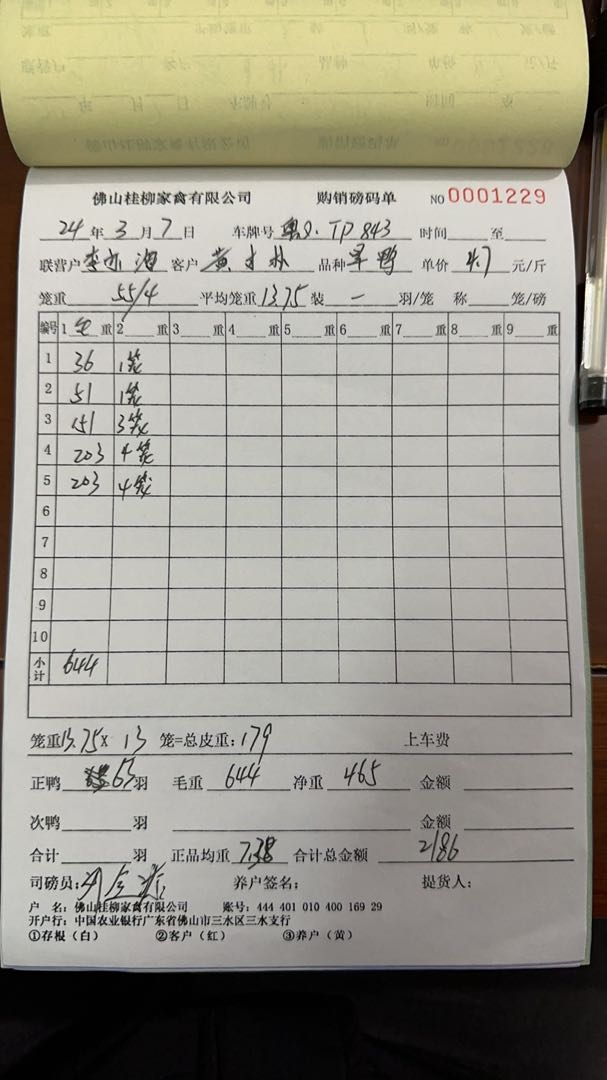 佛山桂柳家禽有限公司 购销磅码单 NO 0001229
24 年 3 月 7 日 车牌号 粤S·TP843 时间 至
联营户 客户 黄 品种 旱鸭 单价 4.7 元/斤
笼重 55/4 平均笼重 13.75 装 一 羽/笼 称 笼/磅
编号 1 毛 重 2 重 3 重 4 重 5 重 6 重 7 重 8 重 9 重
1 36 1笼
2 51 1笼
3 151 3笼
4 203 4笼
5 203 4笼
6
7
8
9
10
小计 644
笼重 13.75 × 13 笼=总皮重: 179 上车费
正鸭 63 羽 毛重 644 净重 465 金额
次鸭 羽 金额
合计 羽 正品均重 7.38 合计总金额 2186
司磅员: 养户签名: 提货人:
户 名: 佛山桂柳家禽有限公司 账号: 444 401 010 400 169 29
开户行: 中国农业银行广东省佛山市三水区三水支行
①存根（白） ②客户（红） ③养户（黄）